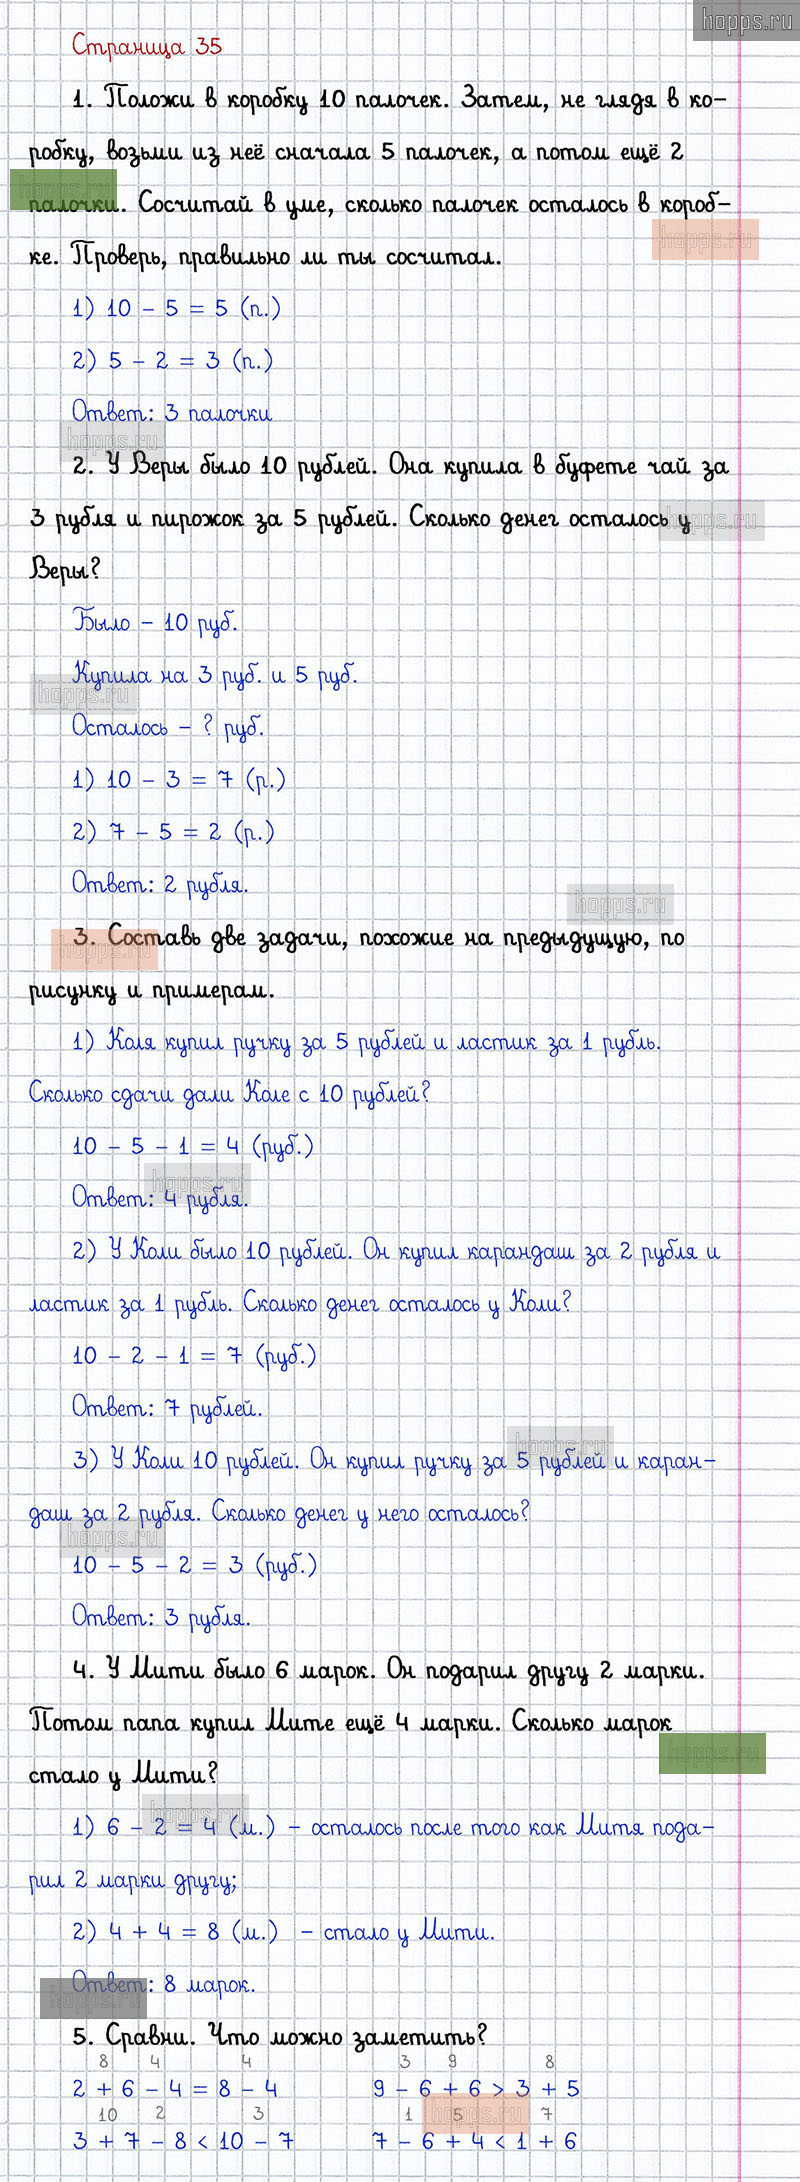 hopps.ru
Страница 35
1. Положи в коробку 10 палочек. Затем, не глядя в ко-
робку, возьми из неё сначала 5 палочек, а потом ещё 2
hopps.ru
палочки. Сосчитай в уме, сколько палочек осталось в короб-
hopps.ru
ке. Проверь, правильно ли ты сосчитал.
1) 10 - 5 = 5 (п.)
2) 5 - 2 = 3 (п.)
Ответ: 3 палочки
hopps.ru
2. У Веры было 10 рублей. Она купила в буфете чай за
3 рубля и пирожок за 5 рублей. Сколько денег осталось у
hopps.ru
Веры?
Было - 10 руб.
Купила на 3 руб. и 5 руб.
hopps.ru
Осталось - ? руб.
1) 10 - 3 = 7 (р.)
2) 7 - 5 = 2 (р.)
Ответ: 2 рубля.
hopps.ru
3. Составь две задачи, похожие на предыдущую, по
hopps.ru
рисунку и примерам.
1) Коля купил ручку за 5 рублей и ластик за 1 рубль.
Сколько сдачи дали Коле с 10 рублей?
10 - 5 - 1 = 4 (руб.)
hopps.ru
Ответ: 4 рубля.
2) У Коли было 10 рублей. Он купил карандаш за 2 рубля и
ластик за 1 рубль. Сколько денег осталось у Коли?
10 - 2 - 1 = 7 (руб.)
Ответ: 7 рублей.
hopps.ru
3) У Коли 10 рублей. Он купил ручку за 5 рублей и каран-
даш за 2 рубля. Сколько денег у него осталось?
hopps.ru
10 - 5 - 2 = 3 (руб.)
Ответ: 3 рубля.
4. У Мити было 6 марок. Он подарил другу 2 марки.
Потом папа купил Мите ещё 4 марки. Сколько марок
hopps.ru
стало у Мити?
hopps.ru
1) 6 - 2 = 4 (м.) - осталось после того как Митя пода-
рил 2 марки другу;
2) 4 + 4 = 8 (м.) - стало у Мити.
Ответ: 8 марок.
hopps.ru
5. Сравни. Что можно заметить?
8 4 4 3 9 8
2 + 6 - 4 = 8 - 4 9 - 6 + 6 > 3 + 5
10 2 3 1 5 7
hopps.ru
3 + 7 - 8 < 10 - 7 7 - 6 + 4 < 1 + 6